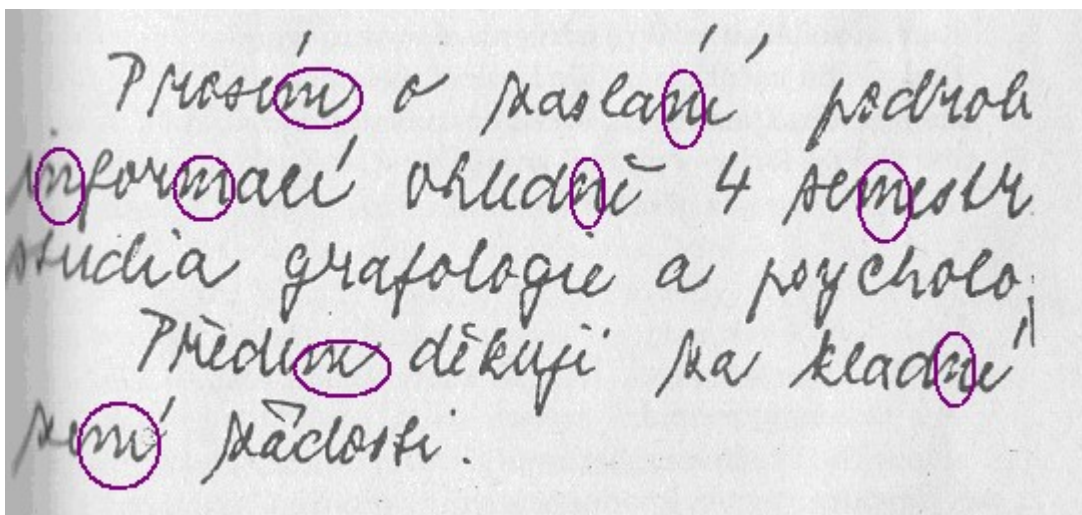 Prosím o zaslání podrob
informací ohledně 4 semestr
studia grafologie a psycholo
Předem děkuji za kladné
zení žádosti.